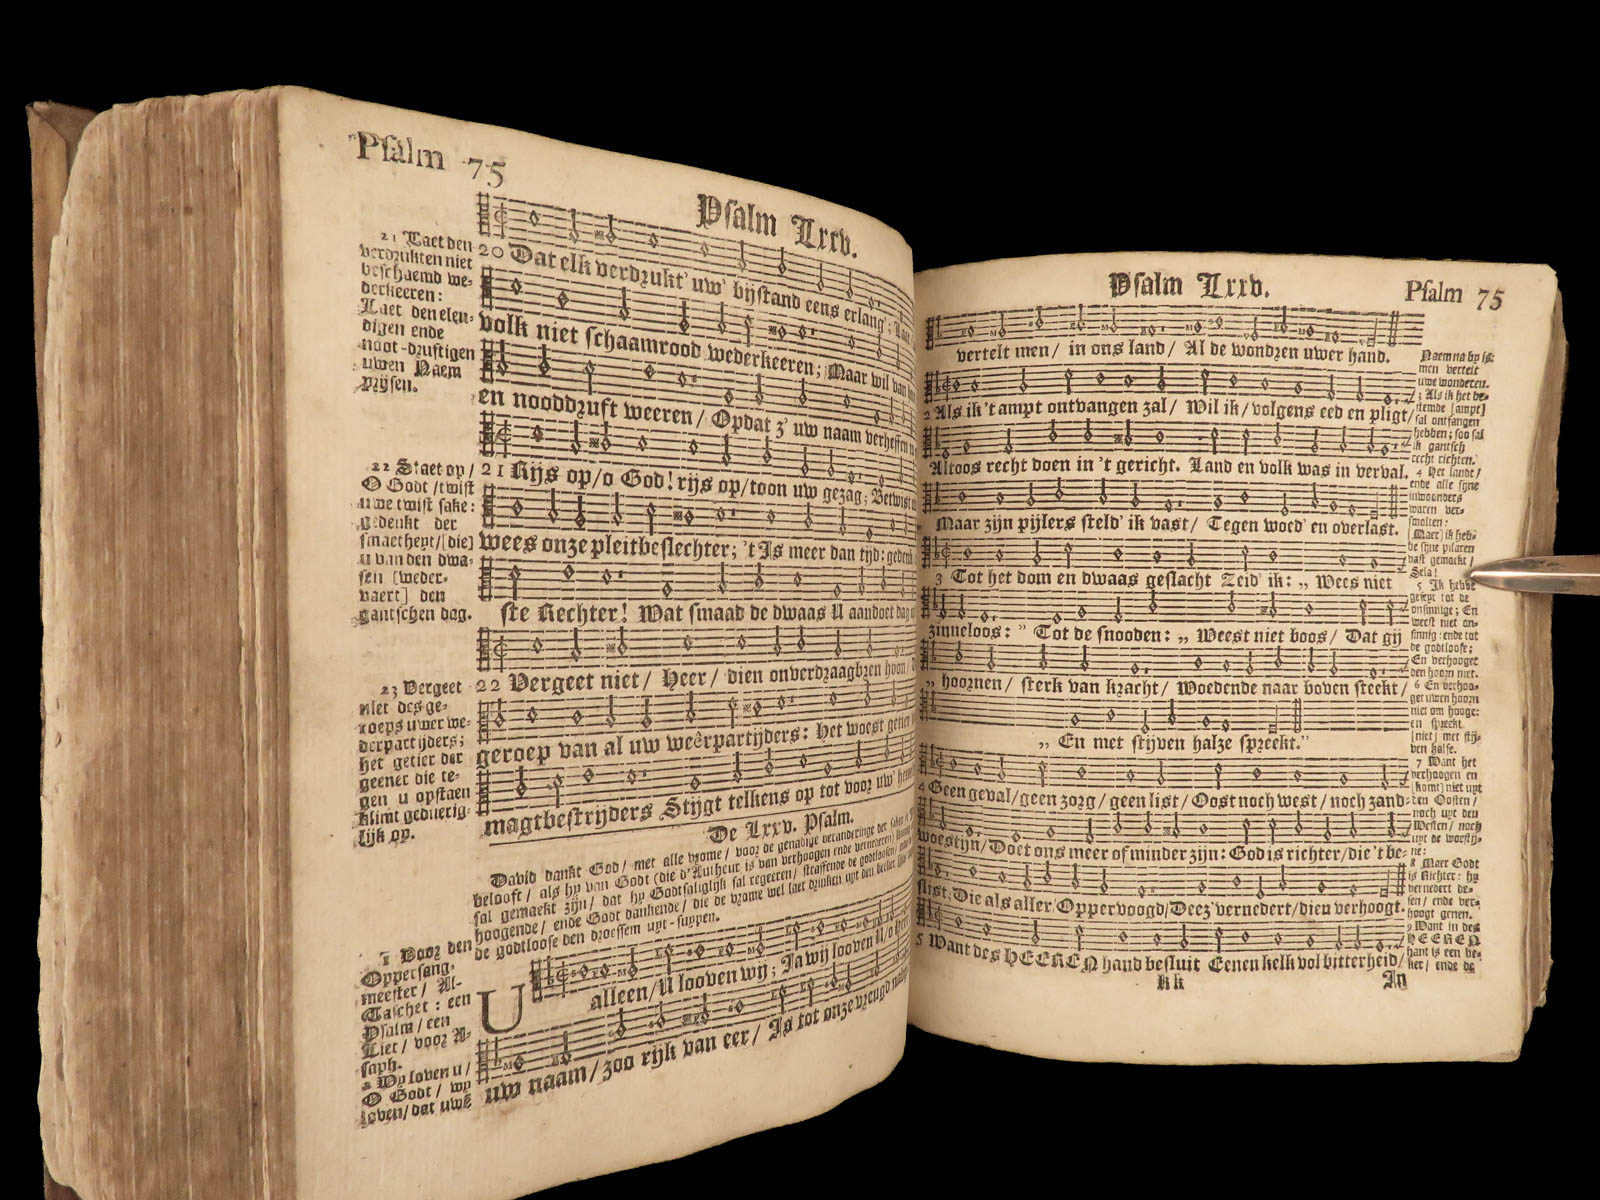 Psalm 75
Psalm Lxxv.
21 Laet den
verdrukten niet
beschaemd we-
derkeeren:
Laet den elen-
digen ende
noot-druftigen
uwen Naem
prijsen.
20 Dat elk verdrukt' uw' bijstand eens erlang';
volk niet schaamrood wederkeeren; Maar wil van
en nooddruft weeren / Opdat z' uw naam verheffen
22 Staet op /
O Godt / twist
uwe twist sake:
gedenkt der
smaetheyt / [die]
u van den dwa-
sen [weder-
vaert] den
gantschen dag.
21 Rijs op / o God! rijs op / toon uw gezag; Betwist
wees onze pleitbeslechter; 't Is meer dan tijd: gedenk
ste Rechter! Wat smaad de dwaas U aandoet dag
23 Vergeet
niet des ge-
roeps uwer we-
derpartijders;
het getier der
geener die te-
gen u opstaen
klimt geduerig-
lijk op.
22 Vergeet niet / Heer / dien onverdraagbren hoon /
geroep van al uw weêrpartijders: Het woest getier
magtbestrijders Stijgt telkens op tot voor uw'
De Lxxv. Psalm.
David dankt God / met alle vrome / voor de genadige veranderinge der
belooft / als hy van Godt (die d'Autheur is van verhoogen ende vernederen)
sal gemaekt zijn / dat hy Godtsaliglijk sal regeeren / straffende de godtloosen /
hoogende / ende Godt dankende / die de vrome wel laet drinken uyt den beker
de godtloose den droessem uyt-suppen.
1 Voor den
Oppersang-
meester / Al-
Taschet: een
Psalm / een
Liet / voor A-
saph.
2 Wy loven u /
O Godt / wy
loven / dat uwē
U alleen / U looven wij; Ja wij looven U / o
uw naam / zoo rijk van eer / Is tot onze vreugd
Psalm Lxxv.
Psalm 75
vertelt men / in ons land / Al de wondren uwer hand.
2 Als ik 't ampt ontvangen zal / Wil ik / volgens eed en pligt /
Altoos recht doen in 't gericht. Land en volk was in verval.
Maar zijn pijlers steld' ik vast / Tegen woed' en overlast.
3 Tot het dom en dwaas geslacht Zeid' ik: „ Wees niet
zinneloos: ” Tot de snooden: „ Weest niet boos / Dat gij
„ hoornen / sterk van kracht / Woedende naar boven steekt /
„ En met stijven halze spreekt.”
4 Geen geval / geen zorg / geen list / Oost noch west / noch zand-
woestijn / Doet ons meer of minder zijn: God is richter / die 't be-
slist; Die als aller Oppervoogd / Deez' vernedert / dien verhoogt.
5 Want des HEEREN hand besluit Eenen kelk vol bitterheid /
Kk
In
Naem na by is:
men vertelt
uwe wonderen.
3 Als ik het be-
stemde [ampt]
sal ontfangen
hebben; soo sal
ik gantsch
recht richten.
4 Het landt /
ende alle sijne
inwoonders
waren ver-
smolten:
[Maer] ik heb-
be sijne pilaren
vast gemaekt /
Sela!
5 Ik hebbe
geseyt tot de
onsinnige; En
weest niet on-
sinnig: ende tot
de godtloose;
En verhooget
den hoorn niet.
6 En verhoo-
get uwen hoorn
niet om hooge:
en spreekt
[niet] met stij-
ven halse.
7 Want het
verhoogen en
[komt] niet uyt
den Oosten /
noch uyt den
Westen / noch
uyt de woestij-
ne:
8 Maer Godt
is Richter: hy
vernedert de-
sen / ende ver-
hoogt genen.
9 Want in des
HEEREN
hant is een be-
ker / ende de